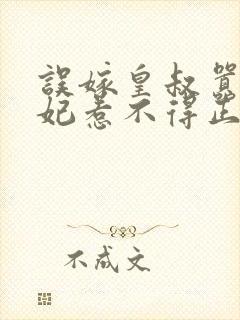 誤嫁皇叔
妃惹不得
不成文